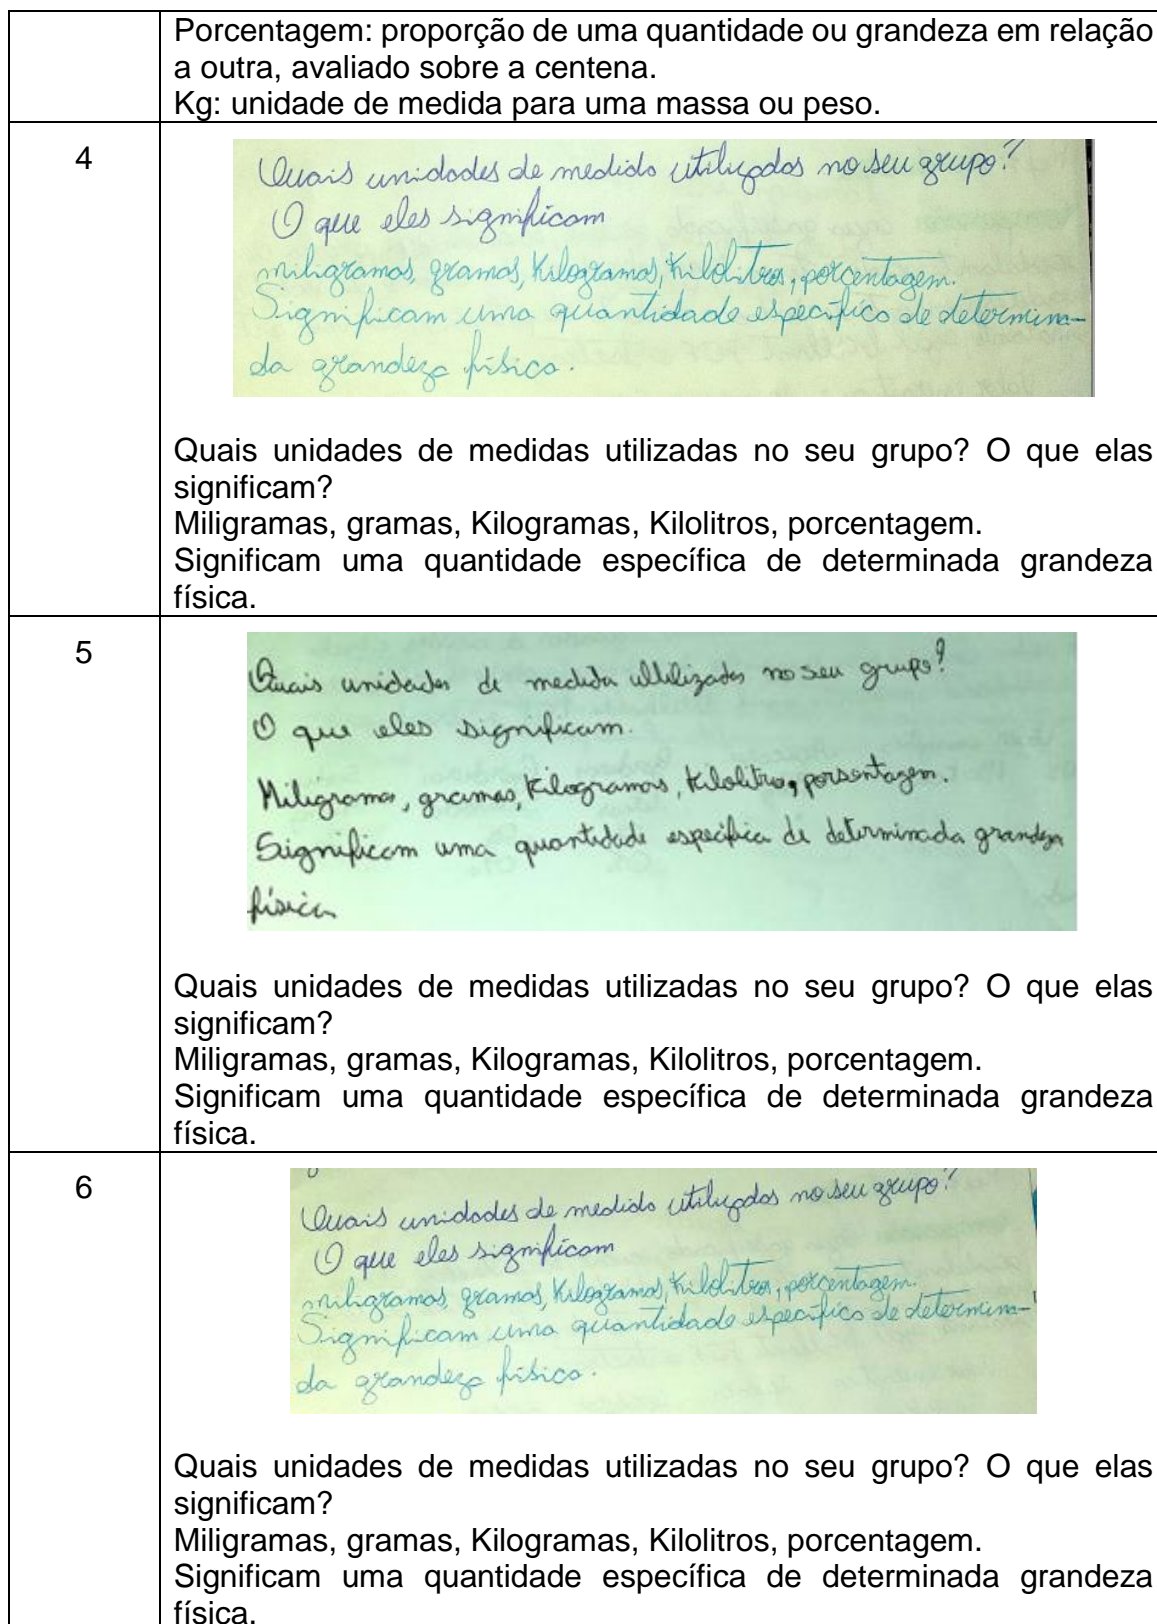 Porcentagem: proporção de uma quantidade ou grandeza em relação
a outra, avaliado sobre a centena.
Kg: unidade de medida para uma massa ou peso.
4
Quais unidades de medida utilizados no seu grupo?
O que eles significam
miligramas, gramas, Kilogramas, Kilolitros, porcentagem.
Significam uma quantidade específico de determina-
da grandeza físico.
Quais unidades de medidas utilizadas no seu grupo? O que elas
significam?
Miligramas, gramas, Kilogramas, Kilolitros, porcentagem.
Significam uma quantidade específica de determinada grandeza
física.
5
Quais unidades de medida utilizados no seu grupo?
O que eles significam.
Miligramas, gramas, Kilogramas, Kilolitros, porsentagem.
Significam uma quantidade específica de determinada grandeza
física
Quais unidades de medidas utilizadas no seu grupo? O que elas
significam?
Miligramas, gramas, Kilogramas, Kilolitros, porcentagem.
Significam uma quantidade específica de determinada grandeza
física.
6
Quais unidades de medida utilizados no seu grupo?
O que eles significam
miligramas, gramas, Kilogramas, Kilolitros, porcentagem.
Significam uma quantidade específico de determina-
da grandeza físico.
Quais unidades de medidas utilizadas no seu grupo? O que elas
significam?
Miligramas, gramas, Kilogramas, Kilolitros, porcentagem.
Significam uma quantidade específica de determinada grandeza
física.